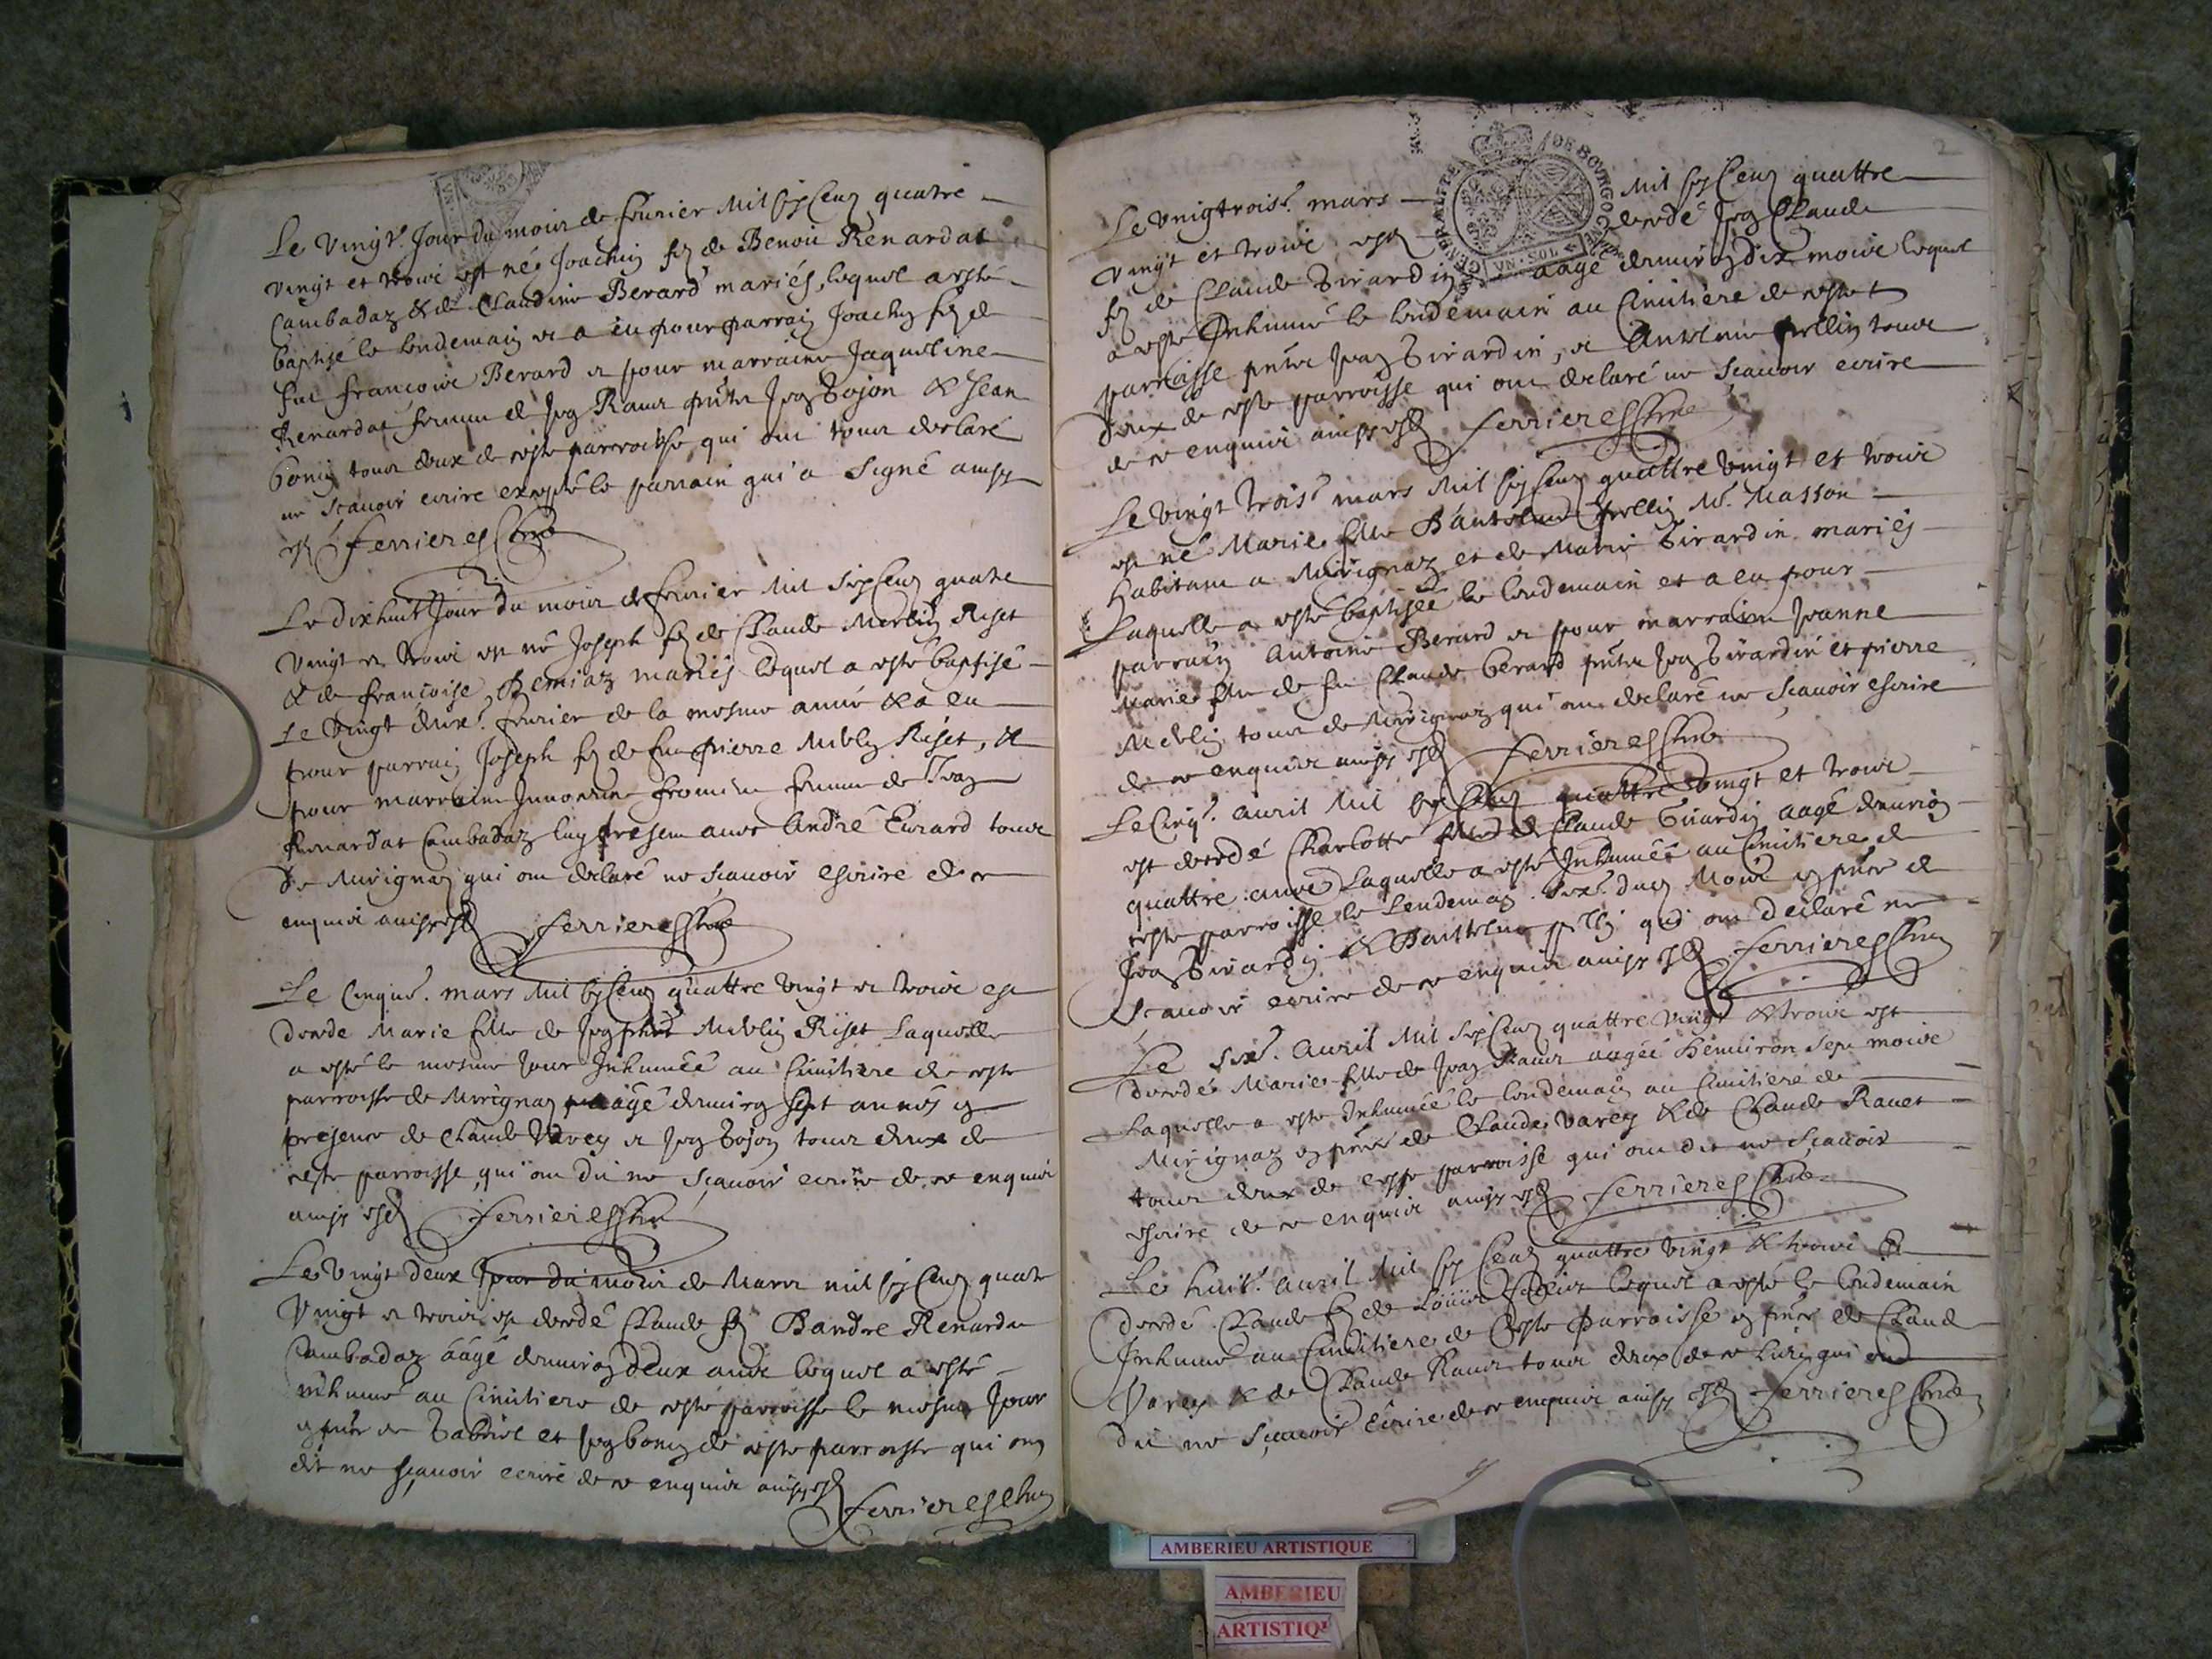 Le vingt.e Jour du mois de feurier Mil six Cens quatre
vingt et trois est né Joachin fils de Benoit Renardat
Cambadaz & de Claudine Berard mariés, lequel a esté
baptisé le lendemain et a eu pour parrain Joachin fils de
feu francois Berard et pour marraine Jaqueline
Renardat femme de Jean Ramé Bojon & Jean
bonin tous deux de ceste parroisse qui ont tous declaré
ne scauoir ecrire excepté le parrain qui a signé ainsy
est Ferrieres Curé
Le dixhuit Jour du mois de feurier Mil Six Cens quatre
vingt et trois est né Joseph fils de Claude Merlin Riset
& de françoise Remiaz mariés lequel a esté baptisé
Le vingt deux.e feurier de la mesme année & a eu
pour parrain Joseph fils de feu pierre Merlin Riset, et
pour marraine femme de Jean
Renardat Cambadaz luy present auec André Eurard tous
de Mirignaz qui ont declaré ne scauoir escrire de ce
enquis ainsy est Ferrieres Curé
Le Cinqui.e mars Mil six Cens quattre vingt et trois est
decedé Marie fille de Merlin Riset Laquelle
a esté le mesme Jour Inhumée au Cimitiere de ceste
parroisse de Mirignaz aagé denuiron sept années en
presence de Claude Varey et Jean Bojon tous deux de
ceste parroisse, qui ont dit ne scauoir ecrire de ce enquis
ainsy est Ferrieres Curé
Le Vingt deux Jour du mois de Mars mil six Cens quatre
Vingt et trois est decedé Claude fils D'andre Renardat
Cambadaz aagé denuiron deux ans lequel a esté
inhumé au Cimitiere de ceste parroisse le mesme Jour
en pnce de Gabriel et Jean bonin de ceste parroisse qui ont
dit ne scauoir ecrire de ce enquis ainsy est
Ferrieres Curé
2
GENERALITE DE BOURGOGNE
Le vingtrois.e mars Mil six Cens quattre
vingt et trois est decedé Jean Claude
fils de Claude Girardin aagé denuiron dix mois lequel
a esté Inhumé le lendemain au Cimitiere de ceste
parroisse Jean Girardin, et Antelme pellin tous
deux de ceste parroisse qui ont declaré ne scauoir ecrire
de ce enquis ainsy est Ferrieres Curé
Le vingt trois.e mars Mil six Cens quattre vingt et trois
est né Marie fille D'antelme pellin M.e Masson
habitant a Mirignaz et de Marie Girardin mariés
Laquelle a esté baptisée le lendemain et a eu pour
parrain Antoine Berard et pour marraine Jeanne
Marie fille de feu Claude berard Jean Girardin et pierre
Merlin tous de Mirignaz qui ont declaré ne scauoir escrire
de ce enquis ainsy est Ferrieres Curé
Le Cinq.e auril Mil six Cens quattre vingt et trois
est decedé Charlotte fille de Claude Girardin aagé denuiron
quattre années Laquelle a esté Inhumée au Cimitiere de
ceste parroisse le lendemain six.e dud. Mois en pnce de
Jean Girardin & D'antelme pellin qui ont declaré ne
scauoir ecrire de ce enquis ainsy est Ferrieres Curé
Le Six.e Auril Mil Six Cens quattre vingt & trois est
decedé Marie fille de Jean Ramé aagée d'enuiron sept mois
Laquelle a esté Inhumée le lendemain au Cimitiere de
Mirignaz en pnce de Claude Varey & de Claude Ramet
tous deux de ceste parroisse qui ont dit ne scauoir
escrire de ce enquis ainsy est Ferrieres Curé
Le huit.e auril Mil six Cens quattre vingt & trois est
decedé Claude fils de Louis lequel a esté le lendemain
Inhumé au Cimitiere de Ceste Parroisse en pnce de Claude
Varey & de Claude Ramé tous deux de ce lieu qui ont
dit ne scauoir Ecrire de ce enquis ainsy est Ferrieres Curé
AMBERIEU ARTISTIQUE
AMBERIEU
ARTISTIQU